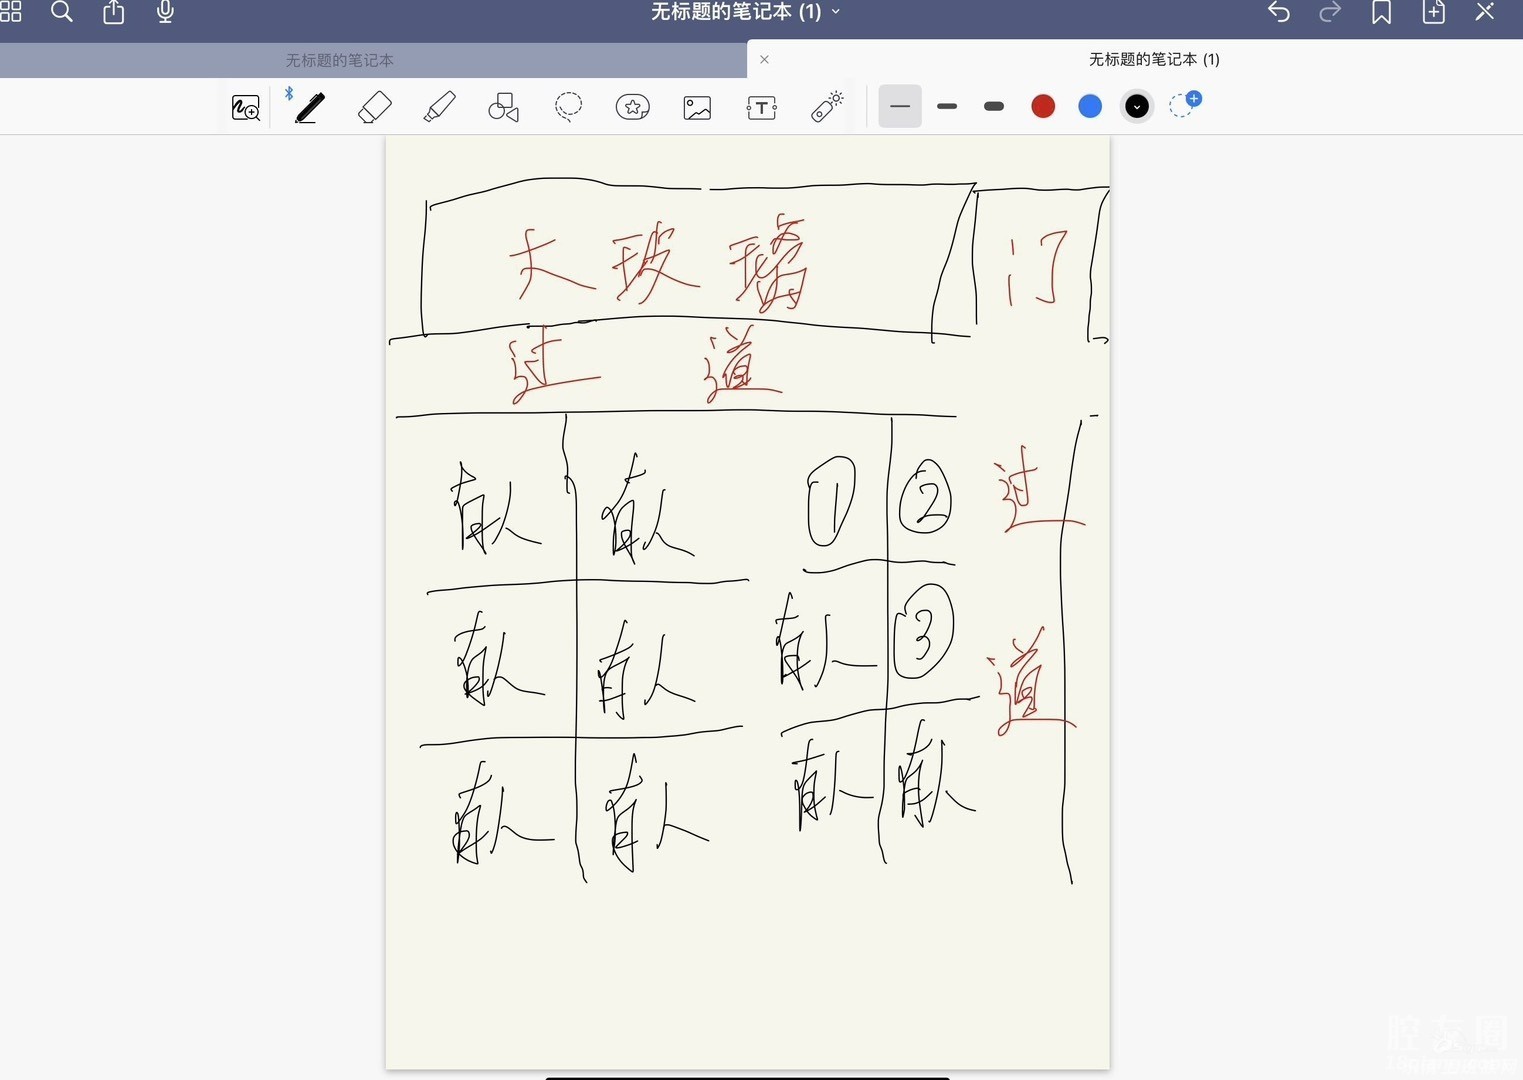 无标题的笔记本 (1)
无标题的笔记本
无标题的笔记本 (1)
大玻璃 门
过 道
有人 有人 ① ② 过
有人 有人 有人 ③ 道
有人 有人 有人 有人